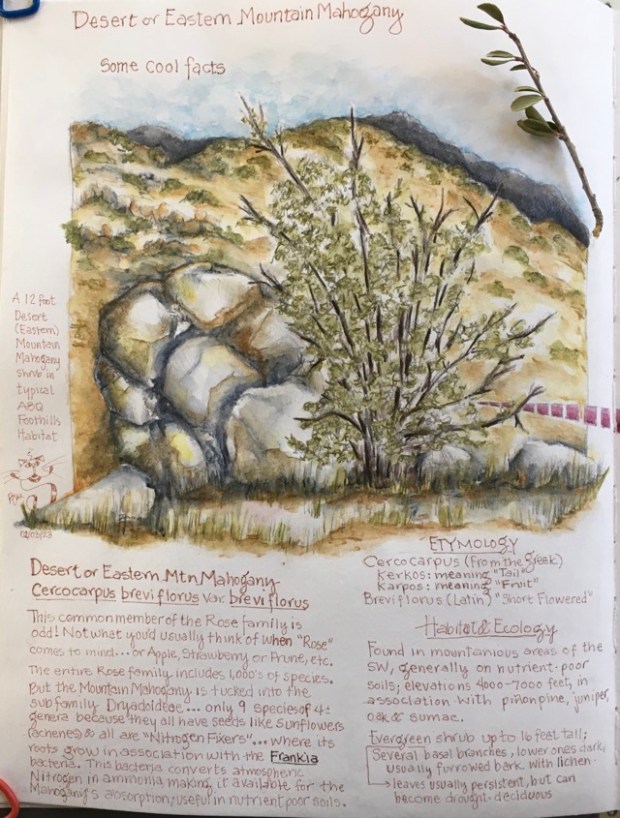 Desert or Eastern Mountain Mahogany
Some cool facts
A 12 foot
Desert
(Eastern)
Mountain
Mahogany
shrub in
typical
ABQ
Foothills
Habitat
Desert or Eastern Mtn Mahogany
Cercocarpus breviflorus var. breviflorus
This common member of the Rose family is
odd! Not what you'd usually think of when "Rose"
comes to mind...or Apple, Strawberry or Prune, etc.
The entire Rose family includes 1,000's of species.
But the Mountain Mahogany is tucked into the
subfamily Dryadoideae... only 9 species of 4
genera because they all have seeds like Sunflowers
(achenes) & all are "Nitrogen Fixers"... where its
roots grow in association with the Frankia
bacteria. This bacteria converts atmospheric
Nitrogen in ammonia, making it available for the
Mahogany's absorption; useful in nutrient poor soils.
Etymology
Cercocarpus (from the Greek)
Kerkos: meaning "Tail"
Karpos: meaning "Fruit"
Breviflorus (Latin) "Short Flowered"
Habitat & Ecology
Found in mountainious areas of the
SW, generally on nutrient-poor
soils; elevations 4000-7000 feet, in
association with piñon pine, juniper,
oak & sumac.
Evergreen shrub up to 16 feet tall;
Several basal branches, lower ones dark,
usually furrowed bark with lichen.
leaves usually persistent, but can
become drought-deciduous